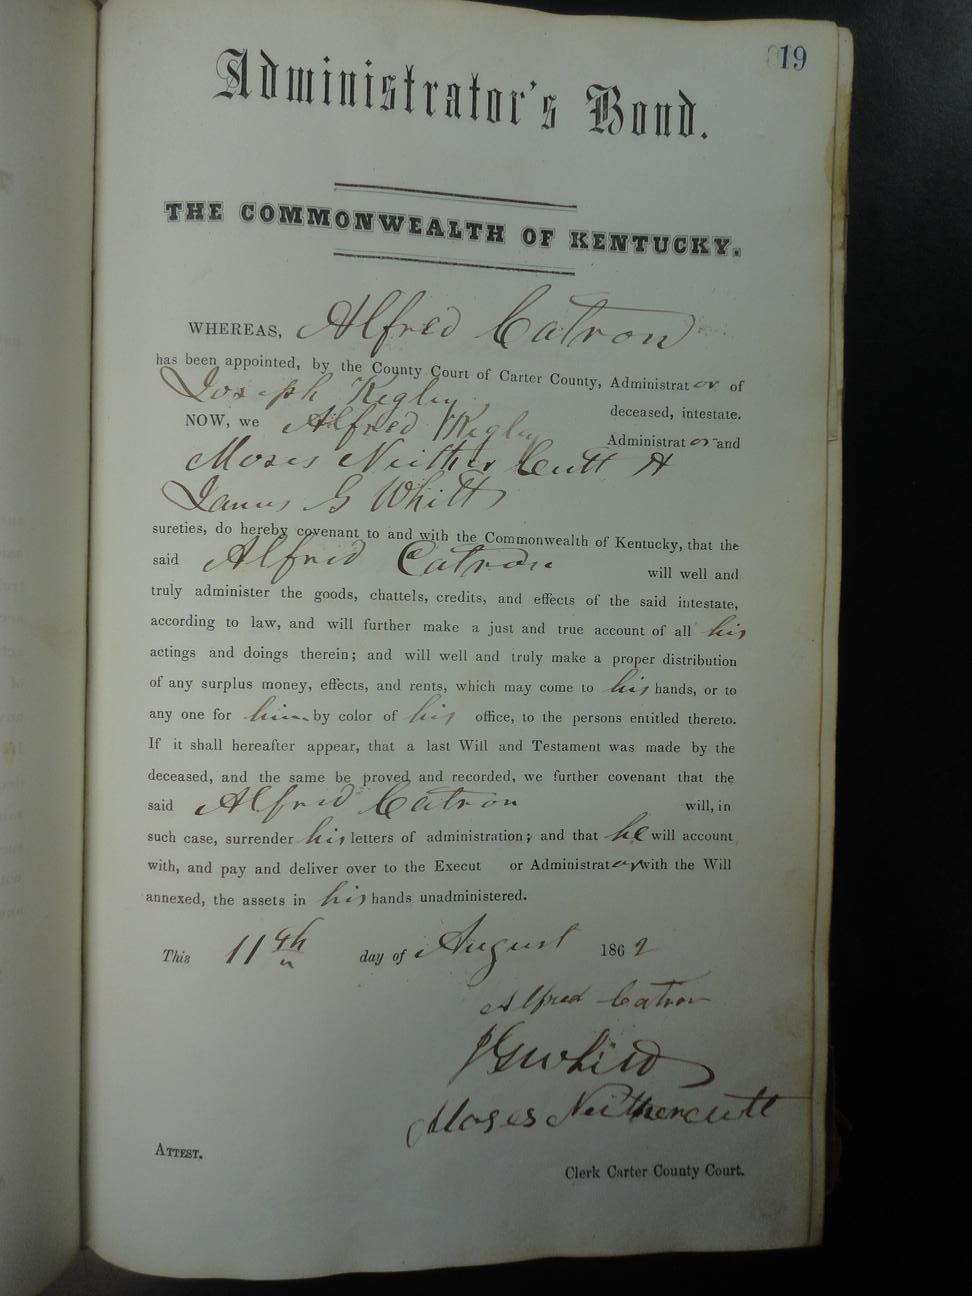 19
Administrator's Bond.
THE COMMONWEALTH OF KENTUCKY.
WHEREAS, Alfred Catron
has been appointed, by the County Court of Carter County, Administrator of
Joseph Kegley deceased, intestate.
NOW, we Alfred Kegley Administrator and
Moses Neither Cutt &
James G Whitt
sureties, do hereby covenant to and with the Commonwealth of Kentucky, that the
said Alfred Catron will well and
truly administer the goods, chattels, credits, and effects of the said intestate,
according to law, and will further make a just and true account of all his
actings and doings therein; and will well and truly make a proper distribution
of any surplus money, effects, and rents, which may come to his hands, or to
any one for him by color of his office, to the persons entitled thereto.
If it shall hereafter appear, that a last Will and Testament was made by the
deceased, and the same be proved and recorded, we further covenant that the
said Alfred Catron will, in
such case, surrender his letters of administration; and that he will account
with, and pay and deliver over to the Execut or Administrator with the Will
annexed, the assets in his hands unadministered.
This 11th day of August 1862
Alfred Catron
J G Whitt
Moses Neithercutt
ATTEST.
Clerk Carter County Court.